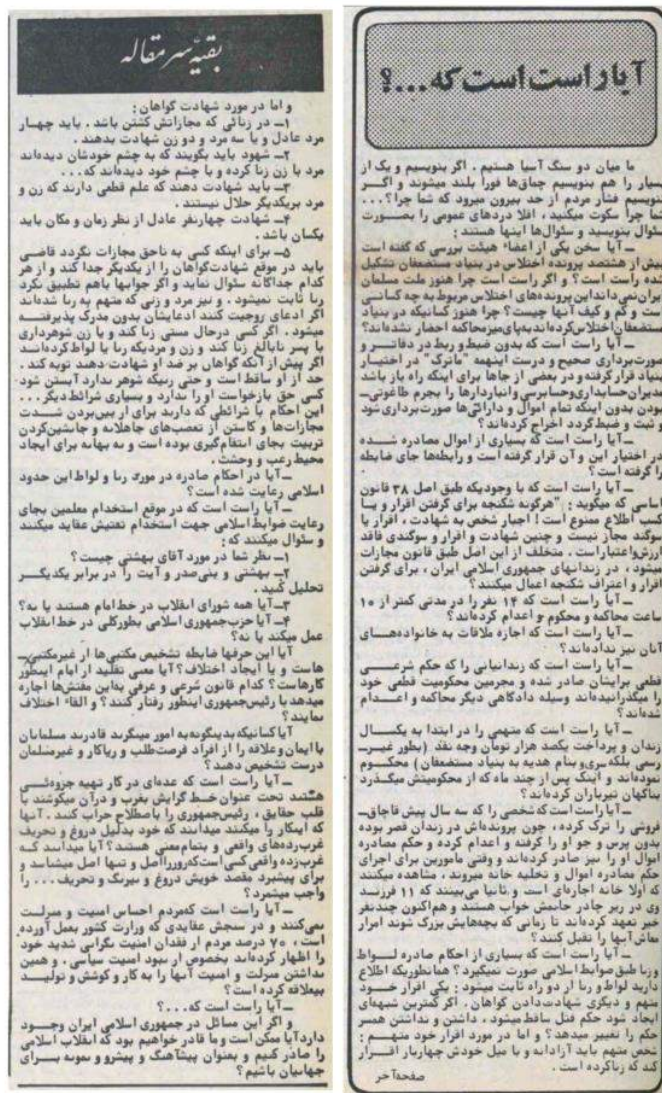 آیا راست است که...؟
ما میان دو سنگ آسیا هستیم . اگر بنویسیم و یک از
بسیار را هم بنویسیم چماق‌ها فورا بلند میشوند و اگر
ننویسیم فشار مردم از حد بیرون میرود که شما چرا؟ ...
شما چرا سکوت میکنید ، اقلا دردهای عمومی را بصورت
سئوال بنویسید و سئوال‌ها اینها هستند :
ــ آیا سخن یکی از اعضاء هیئت بررسی که گفته است
بیش از هشتصد پرونده اختلاس در بنیاد مستضعفان تشکیل
شده راست است؟ و اگر راست است چرا هنوز ملت مسلمان
ایران نمی‌داند این پرونده‌های اختلاس مربوط به چه کسانی
است و کم و کیف آنها چیست؟ چرا هنوز کسانیکه در بنیاد
مستضعفان اختلاس کرده‌اند به پای میز محاکمه احضار نشده‌اند؟
ــ آیا راست است که بدون ضبط و ربط در دفاتر و
صورت‌برداری صحیح و درست اینهمه "ماترک" در اختیار
بنیاد قرار گرفته و در بعضی از جاها برای اینکه راه باز باشد
مدیران حسابداری و حسابرسی و انباردارها را بجرم طاغوتی ــ
بودن بدون اینکه تمام اموال و دارائی‌ها صورت‌برداری شود
و ثبت و ضبط گردد اخراج کرده‌اند؟
ــ آیا راست است که بسیاری از اموال مصادره شده
در اختیار این و آن قرار گرفته است و رابطه‌ها جای ضابطه
را گرفته است؟
ــ آیا راست است که با وجودیکه طبق اصل ۳۸ قانون
اساسی که میگوید : "هرگونه شکنجه برای گرفتن اقرار و یا
کسب اطلاع ممنوع است ! اجبار شخص به شهادت ، اقرار یا
سوگند مجاز نیست و چنین شهادت و اقرار و سوگندی فاقد
ارزش و اعتبار است . متخلف از این اصل طبق قانون مجازات
میشود ، در زندانهای جمهوری اسلامی ایران ، برای گرفتن
اقرار و اعتراف شکنجه اعمال میکنند؟
ــ آیا راست است که ۱۴ نفر را در مدتی کمتر از ۱۰
ساعت محاکمه و محکوم و اعدام کرده‌اند؟
ــ آیا راست است که اجازه ملاقات به خانواده‌های
آنان نیز نداده‌اند؟
ــ آیا راست است که زندانیانی را که حکم شرعی
قطعی برایشان صادر شده و مجرمین محکومیت قطعی خود
را میگذرانیده‌اند وسیله دادگاهی دیگر محاکمه و اعدام
شده‌اند؟
ــ آیا راست است که متهمی را در ابتدا به یکسال
زندان و پرداخت یکصد هزار تومان وجه نقد (بطور غیر ــ
رسمی بلکه سری و بنام هدیه به بنیاد مستضعفان) محکوم
نموده‌اند و اینک پس از چند ماه که از محکومیتش میگذرد
بناگهان تیرباران کرده‌اند؟
ــ آیا راست است که شخصی را که سه سال پیش قاچاق ــ
فروشی را ترک کرده ، چون پرونده‌اش در زندان قصر بوده
بدون پرس و جو او را گرفته و اعدام کرده و حکم مصادره
اموال او را نیز صادر کرده‌اند و وقتی مامورین برای اجرای
حکم مصادره اموال و تخلیه خانه میروند ، مشاهده میکنند
که اولا خانه اجاره‌ای است و ثانیا می‌بینند که ۱۱ فرزند
وی در زیر چادر خانمش خواب هستند و هم‌اکنون چند نفر
خیر تعهد کرده‌اند تا زمانی که بچه‌هایش بزرگ شوند امرار
معاش آنها را تقبل کنند؟
ــ آیا راست است که بسیاری از احکام صادره لواط
و زنا طبق ضوابط اسلامی صورت نمیگیرد؟ همانطوریکه اطلاع
دارید لواط و زنا از دو راه ثابت میشود : یکی اقرار خود
متهم و دیگری شهادت دادن گواهان . اگر کمترین شبهه‌ای
ایجاد شود حکم قتل ساقط میشود ، داشتن و نداشتن همسر
حکم را تغییر میدهد؟ و اما در مورد اقرار خود متهم :
شخص متهم باید آزادانه و با میل خودش چهاربار اقرار
کند که زنا کرده است .
صفحه آخر
بقیه سرمقاله
و اما در مورد شهادت گواهان :
۱ــ در زنائی که مجازاتش کشتن باشد ، باید چهار
مرد عادل و یا سه مرد و دو زن شهادت بدهند .
۲ــ شهود باید بگویند که به چشم خودشان دیده‌اند
مرد با زن زنا کرده و با چشم خود دیده‌اند که ...
۳ــ باید شهادت دهند که علم قطعی دارند که زن و
مرد بریکدیگر حلال نیستند .
۴ــ شهادت چهارنفر عادل از نظر زمان و مکان باید
یکسان باشد .
۵ــ برای اینکه کسی به ناحق مجازات نگردد قاضی
باید در موقع شهادت گواهان را از یکدیگر جدا کند و از هر
کدام جداگانه سئوال نماید و اگر جوابها باهم تطبیق نکرد
زنا ثابت نمیشود . و نیز مرد و زنی که متهم به زنا شده‌اند
اگر ادعای زوجیت کنند ادعایشان بدون مدرک پذیرفته
میشود . اگر کسی درحال مستی زنا کند و یا زن شوهرداری
با پسر نابالغ زنا کند و زن و مردیکه زنا یا لواط کرده‌اند
اگر پیش از آنکه گواهان بر ضد او شهادت دهند توبه کند ،
حد از او ساقط است و حتی زنیکه شوهر ندارد آبستن شود
کسی حق بازخواست او را ندارد و بسیاری شرائط دیگر ...
این احکام با شرائطی که دارند برای از بین‌بردن شدت
مجازات‌ها و کاستن از تعصب‌های جاهلانه و جانشین‌کردن
تربیت بجای انتقام‌گیری بوده است و نه بهانه برای ایجاد
محیط رعب و وحشت .
ــ آیا در احکام صادره در مورد زنا و لواط این حدود
اسلامی رعایت شده است؟
ــ آیا راست است که در موقع استخدام معلمین بجای
رعایت ضوابط اسلامی جهت استخدام تفتیش عقاید میکنند
و سئوال میکنند که :
۱ــ نظر شما در مورد آقای بهشتی چیست؟
۲ــ بهشتی و بنی‌صدر و آیت را در برابر یکدیگر
تحلیل کنید .
۳ــ آیا همه شورای انقلاب در خط امام هستند یا نه؟
۴ــ آیا حزب جمهوری اسلامی بطورکلی در خط انقلاب
عمل میکند یا نه؟
آیا این حرفها ضابطه تشخیص مکتبی‌ها از غیرمکتبی ــ
هاست و یا ایجاد اختلاف؟ آیا معنی تقلید از امام اینطور
کارهاست؟ کدام قانون شرعی و عرفی به این مفتش‌ها اجازه
میدهد با رئیس‌جمهوری اینطور رفتار کنند؟ و القاء اختلاف
نمایند؟
آیا کسانیکه بدینگونه به امور مینگرند قادرند مسلمانان
با ایمان و علاقه را از افراد فرصت‌طلب و ریاکار و غیرمسلمان
درست تشخیص دهند؟
ــ آیا راست است که عده‌ای در کار تهیه جزوه‌ئی
هستند تحت عنوان خط گرایش بغرب و در آن میکوشند با
قلب حقایق ، رئیس‌جمهوری را باصطلاح خراب کنند . آنها
که اینکار را میکنند میدانند که خود بدلیل دروغ و تحریف
غرب‌زده‌های واقعی و بتمام‌معنی هستند؟ آیا میدانند که
غرب‌زده واقعی کسی است که زور را اصل و تنها اصل میشناسد و
برای پیشبرد مقصد خویش دروغ و نیرنگ و تحریف ... را
واجب میشمرد؟
ــ آیا راست است که مردم احساس امنیت و منزلت
نمی‌کنند و در سنجش عقایدی که وزارت کشور بعمل آورده
است ، ۷۰ درصد مردم از فقدان امنیت نگرانی شدید خود
را اظهار کرده‌اند بخصوص از نبود امنیت سیاسی ، و همین
نداشتن منزلت و امنیت آنها را به کار و کوشش و تولید
بیعلاقه کرده است؟
ــ آیا راست است که ...؟
و اگر این مسائل در جمهوری اسلامی ایران وجود
دارد آیا ممکن است و ما قادر خواهیم بود که انقلاب اسلامی
را صادر کنیم و بعنوان پیشآهنگ و پیشرو و نمونه برای
جهانیان باشیم؟